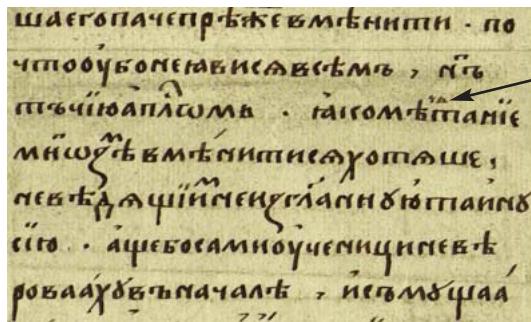 шаегопачепрѣжевмѣнити · по
чтооубонеꙗвисѧвсѣмъ , нъ
тъчїюап҃лѡмъ · ꙗкомѣⷱ҇танїе
мнѡзⷨѣвмѣнитисѧхотѧше ,
невѣдѧщїиⷨнеизгл҃аннуютаину
сїю · ащебосамиоученициневѣ
роваахувъначалѣ , исъмущаа